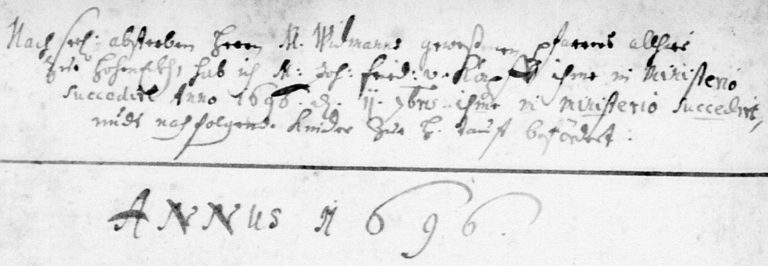 Nach seel: absterben Herrn M. Widmanns geweßenen pfarrers allhier
Zue Hohen hab ich M: Joh: Fried: v. ihme in Ministerio
Succedirt Anno 1696. d. 11. 7bris ihme in ministerio Succedirt,
undt nachfolgende Kinder Zue H. tauff befördert:
ANNUS 1696.